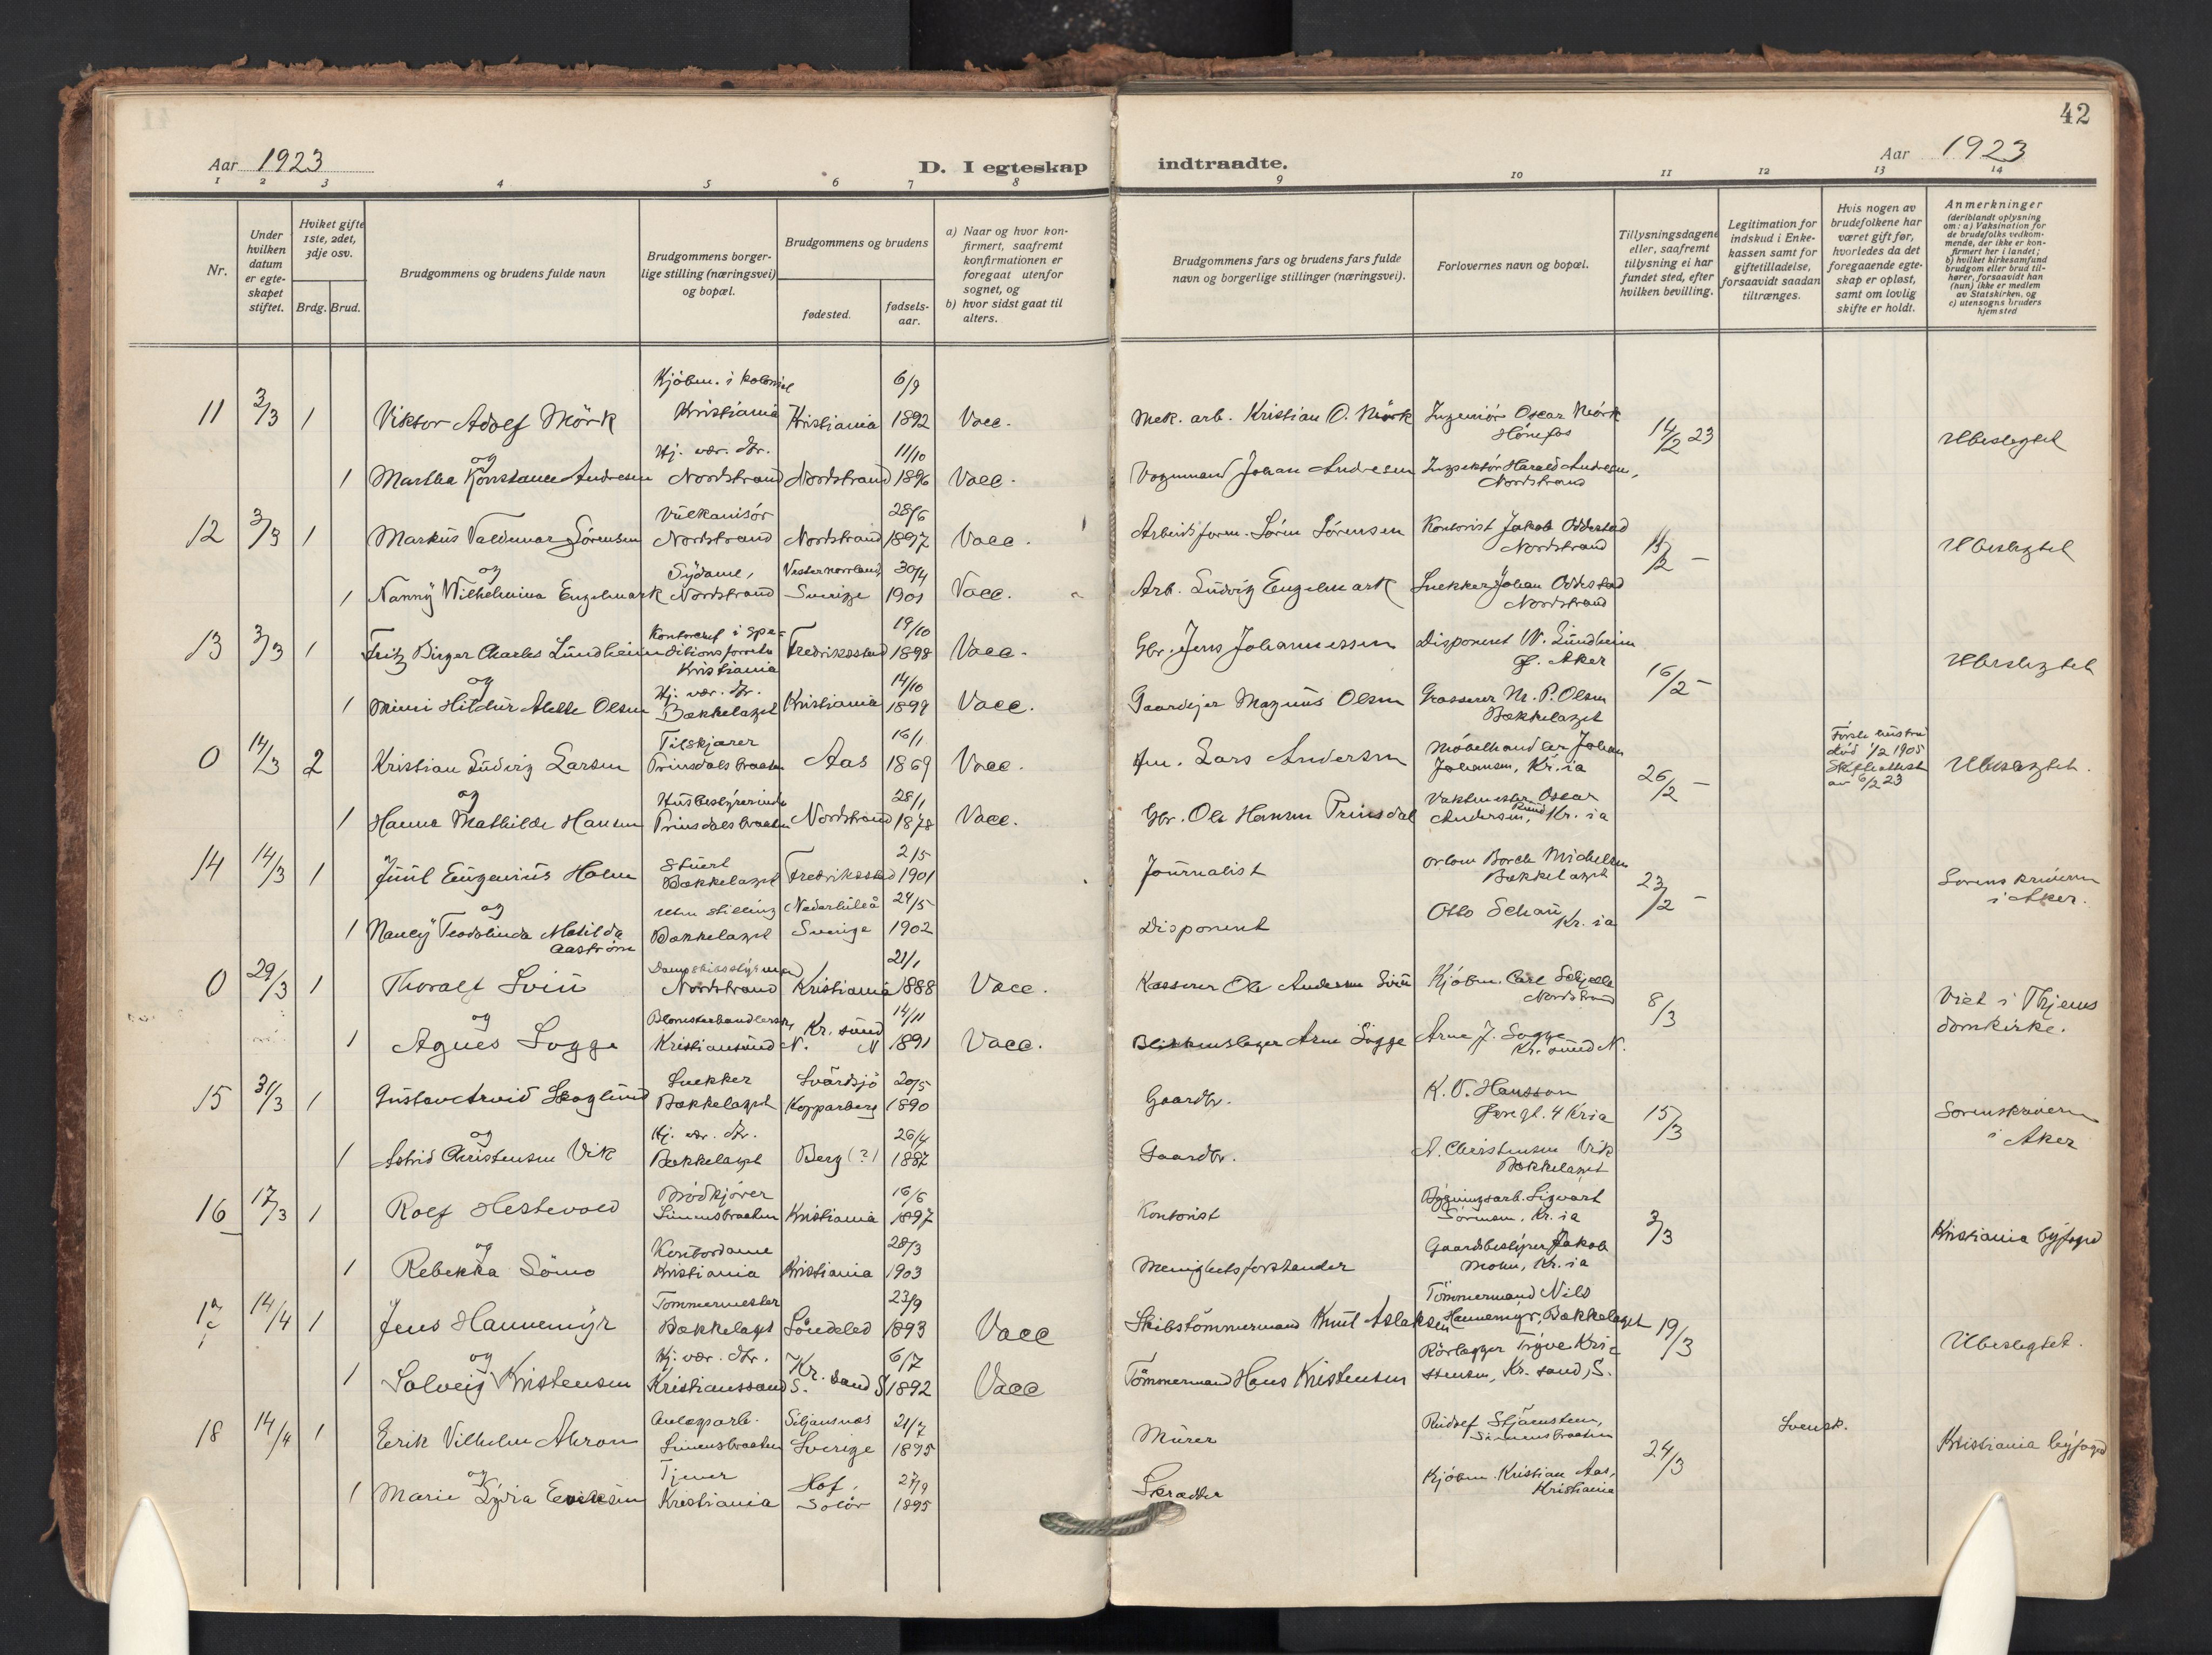 42
Aar 1923
D. I egteskap indtraadte.
Aar 1923
1 2 3 4 5 6 7 8 9 10 11 12 13 14
Nr.
Under hvilken datum er egteskapet stiftet.
Hviket gifte 1ste, 2det, 3dje osv.
Brdg. Brud.
Brudgommens og brudens fulde navn
Brudgommens borgerlige stilling (næringsvei) og bopæl.
Brudgommens og brudens
fødested.
fødsels-aar.
a) Naar og hvor konfirmert, saafremt konfirmationen er foregaat utenfor sognet, og
b) hvor sidst gaat til alters.
Brudgommens fars og brudens fars fulde navn og borgerlige stillinger (næringsvei).
Forlovernes navn og bopæl.
Tillysningsdagene eller, saafremt tillysning ei har fundet sted, efter hvilken bevilling.
Legitimation for indskud i Enkekassen samt for giftetilladelse, forsaavidt saadan tiltrænges.
Hvis nogen av brudefolkene har været gift før, hvorledes da det foregaaende egteskap er opløst, samt om lovlig skifte er holdt.
Anmerkninger
(deriblandt oplysning om: a) Vaksination for de brudefolks vedkommende, der ikke er konfirmert her i landet; b) hvilket kirkesamfund brudgom eller brud tilhører, forsaavidt han (hun) ikke er medlem av Statskirken, og c) utensogns bruders hjemsted
11 3/3 1 Viktor Adolf Mörk Kjöbm. i kolonial Kristiania Kristiania 6/9 1892 Vacc. Mek. arb. Kristian O. Mörk Ingeniör Oscar Mörk Hönefos 14/2 23 Ubeslegtet
og
1 Martha Konstance Andresen Hj. vær. dtr. Nordstrand Nordstrand 11/10 1896 Vacc. Vognmand Johan Andresen Inspektör Harald Andresen, Nordstrand
12 3/3 1 Markus Valdemar Sörensen Vulkanisör Nordstrand Nordstrand 28/6 1897 Vacc. Arbeidsform. Sören Sörensen Kontorist Jakob Oddestad Nordstrand Ubeslegtet
og
1 Nanny Wilhelmina Engelmark Sydame, Nordstrand Vesternorrland, Sverige 30/4 1901 Vacc. Arb. Ludvig Engelmark Snekker Johan Oddestad Nordstrand
13 3/3 1 Fritz Birger Charles Lundheim Kontorchef i speditionsforretn. Kristiania Fredriksstad 19/10 1898 Vacc. Gbr. Jens Johannessen Disponent W. Lundheim Ø. Aker 16/2 - Ubeslegtet
og
1 Mimi Hildur Alette Olsen Hj. vær. dtr. Bækkelaget Kristiania 14/10 1899 Vacc. Gaardejer Magnus Olsen Grosserer M. P. Olsen Bækkelaget
0 14/3 2 Kristian Ludvig Larsen Filskjærer Prinsdalsbraaten Aas 16/1 1869 Vacc. Lars Andersen Möbelhandler Johan Johansen, Kr.ia 26/2 - Förste hustru död 1/2 1905 Skifteattest av 6/2 23 Ubeslegtet.
og
1 Hanna Mathilde Hansen Husbestyrerinde Prinsdalsbraaten Nordstrand 28/1 1878 Vacc. Gbr. Ole Hansen Prinsdal Vaktmester Oscar Rund Andersen, Kr.ia
14 14/3 1 Juul Eugenius Holm Stuert Bækkelaget Fredriksstad 2/5 1901 Journalist Borch Michelsen Bækkelaget 23/2 - Sorenskriveren i Aker.
og
1 Nancy Teodolinda Matilda Aaström Uten stilling Bækkelaget Nederluleå Sverige 24/5 1902 Disponent Otto Schau Kr.ia
0 29/3 1 Thoralf Sviu Dampskibsstyrmand Nordstrand Kristiania 21/1 1888 Vacc. Kasserer Ole Andersen Sviu Kjöbm. Carl Schjelle Nordstrand 8/3 Viet i Thjems domkirke.
og
1 Agnes Sogge Blomsterhandlerske, Kristiansund N. Kr. sund N 14/11 1891 Vacc. Blikkenslager Arne Sogge Arne J. Sogge Kr. sund N.
15 31/3 1 Gustav Arvid Skoglund Snekker Bækkelaget Svärdsjö Kopparberg 20/5 1890 Gaardbr. K. O. Hansson 4 Kria 15/3 Sorenskriveren i Aker
og
1 Astrid Christensen Vik Hj. vær. dtr. Bækkelaget Berg (?) 26/4 1887 Gaardbr. A. Christensen Vik Bækkelaget
16 17/3 1 Rolf Hestevold Brödkjörer Simensbraaten Kristiania 16/6 1897 Kontorist Bygningsarb. Sigvart Sörensen, Kr.ia 3/3 Kristiania byfogd
og
1 Rebekka Sömo Kontordame Kristiania Kristiania 28/3 1903 Menighetsforstander Gaardsbestyrer Jakob Mohn, Kr.ia
17 14/4 1 Jens Hannemyr Tömmermester Bækkelaget Söndeled 23/9 1893 Vacc Skibstömmermand Knut Aslaksen Tömmermand Nils Hannemyr, Bækkelaget 19/3 Ubeslegtet.
og
1 Solveig Kristensen Hj. vær. dtr. Kristianssand S. Kr. sand S 6/7 1892 Vacc Tömmermand Hans Kristensen Rörlægger Trygve Kristensen, Kr. sand, S.
18 14/4 1 Eerik Vilhelm Ahron Anlægsarb. Simensbraaten Siljansnäs Sverige 21/7 1895 Murer Rudolf Stjärnsten, Simensbraaten 24/3 Svensk. Kristiania byfogd
og
1 Marie Lydia Eriksen Tjener Kristiania Hof, Solör 27/9 1895 Skrædder Kjöbm. Kristian Aas, Kristiania